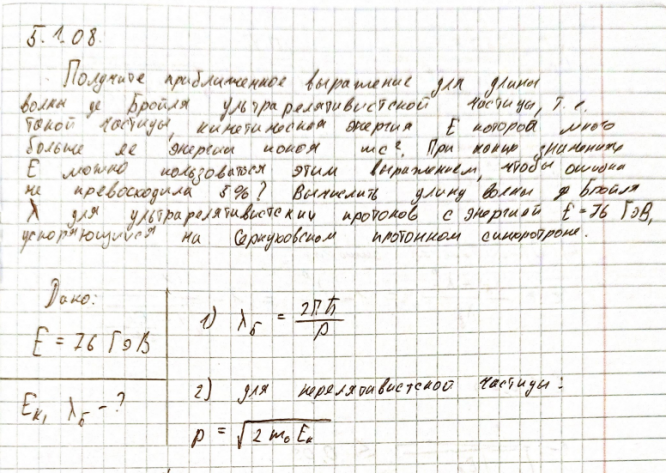 5.1.08.
Получите приближенное выражение для длины
волны де Бройля ультрарелятивистской частицы, т.е.
такой частицы, кинетическая энергия E которой много
больше ее энергии покоя mc². При каких значениях
E можно пользоваться этим выражением, чтобы ошибка
не превосходила 5%? Вычислить длину волны де Бройля
λ для ультрарелятивистских протонов с энергией E=76 ГэВ,
ускоряющихся на Серпуховском протонном синхротроне.
Дано:
E = 76 ГэВ
Eк, λБ - ?
1) λБ = 2πħ/p
2) для нерелятивистской частицы:
p = √(2 m₀ Eк)